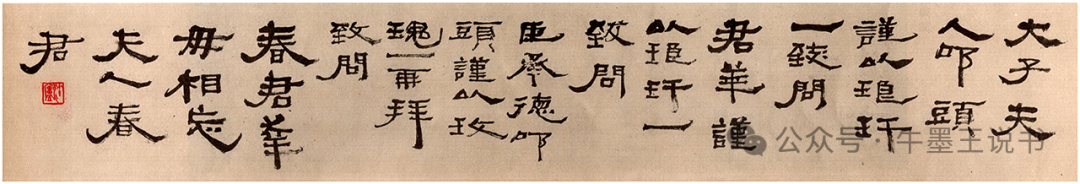 大子夫
人叩頭
謹以琅玕
一致問
君華謹
以琅玕一
致問
臣承德叩
頭謹以玫
瑰一再拜
致問
春君幸
毋相忘
夫人春
君
公众号·牛墨王说书